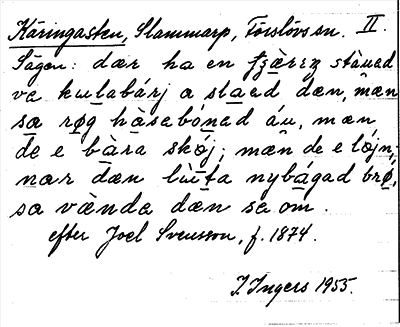 Käringasten, Slammarp, Förslövs sn. II.
Sägen: dær ha en fzæ̀rin stànad
va kulabárj a slaed dæn, mæn
sa røg hàsabónad áu, mæn
de e bàra skǿj; mæn de e løjn;
nar dæn lùta nybágad brø,
sa vænda dæn sa om.
efter Joel Svensson, f. 1874.
I. Ingers 1955.